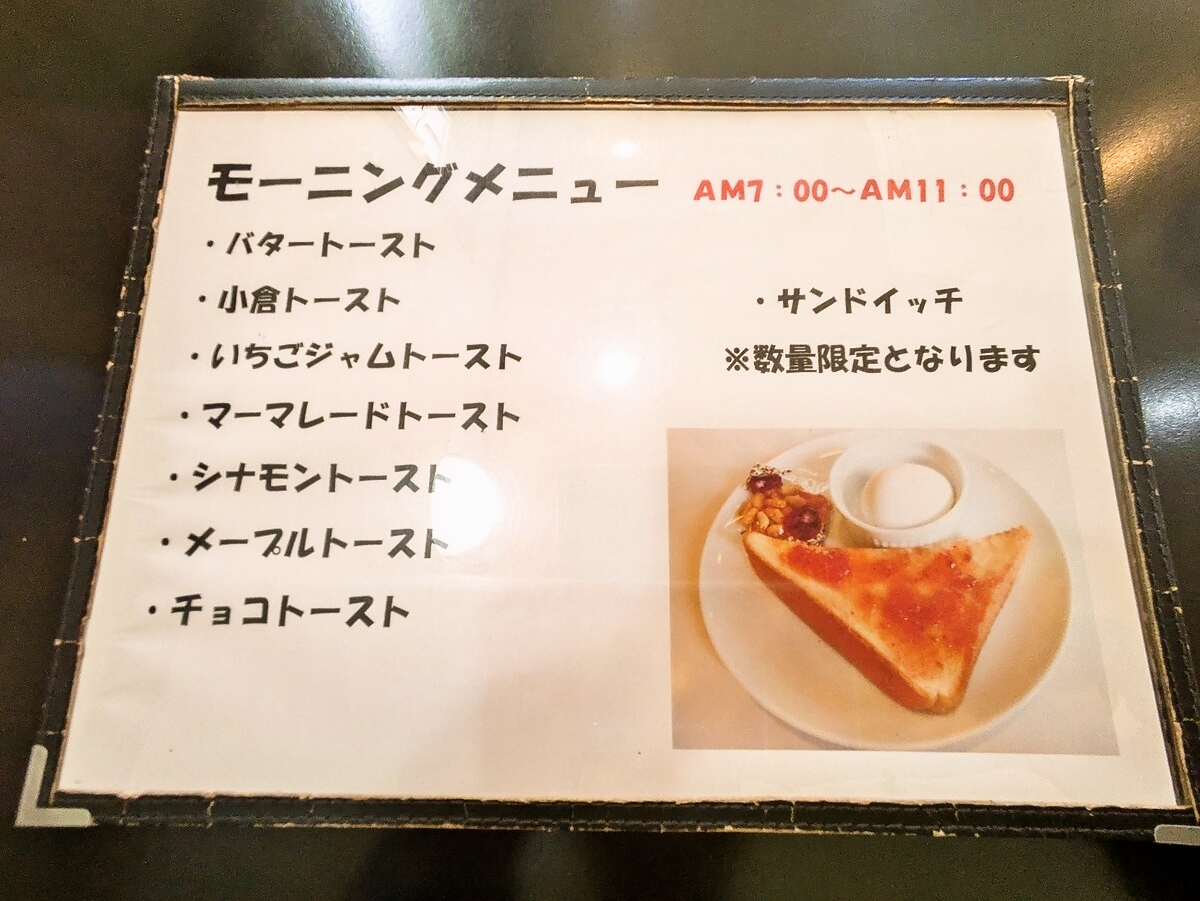 モーニングメニュー AM7：00～AM11：00
・バタートースト
・小倉トースト
・いちごジャムトースト
・マーマレードトースト
・シナモントースト
・メープルトースト
・チョコトースト
・サンドイッチ
※数量限定となります